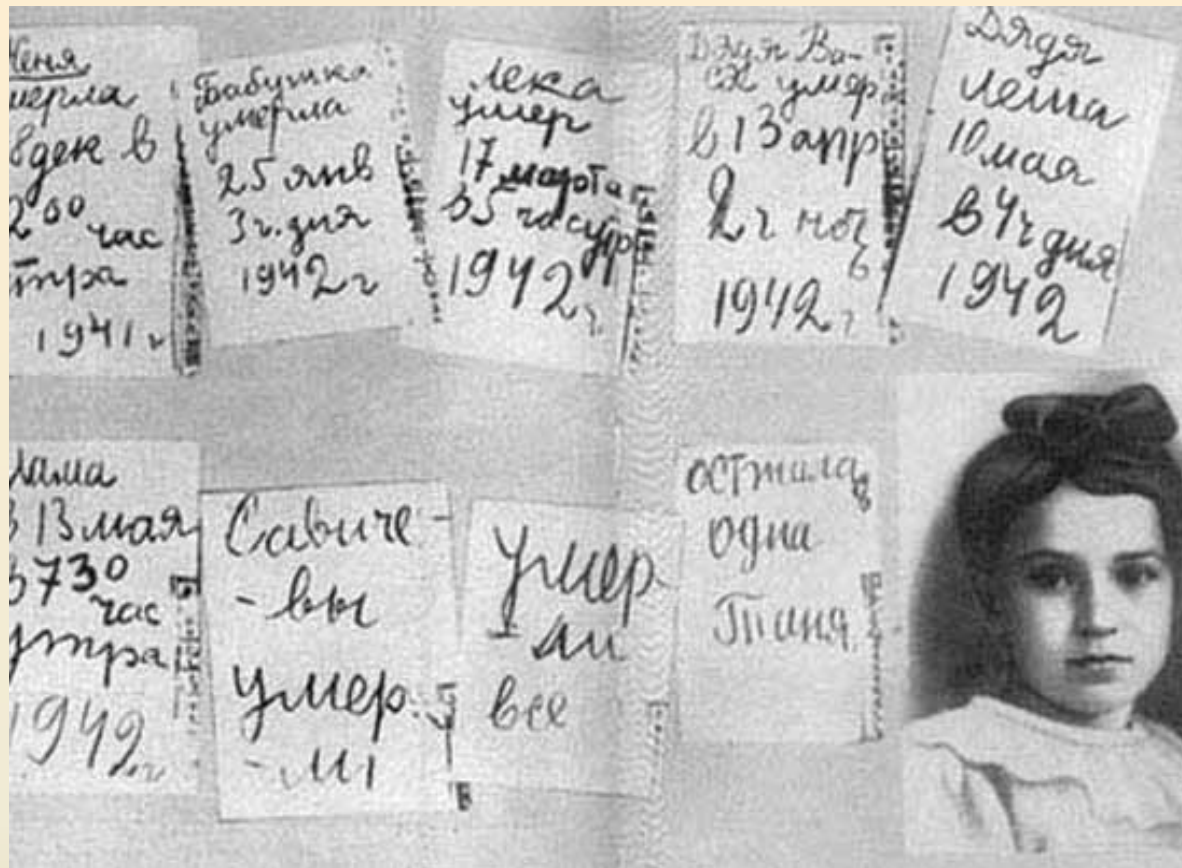 Женя
умерла
28 дек в
12 00 час
утра
1941 г
Бабушка
умерла
25 янв
3 ч. дня
1942 г
Лека
умер
17 марта
в 5 час утр
1942 г.
Дядя Ва-
ся умер
в 13 апр
2 ч ноч
ь
1942 г
Дядя
Леша
10 мая
в 4 ч дня
1942
Мама
в 13 мая
в 7 30
час
утра
1942 г
Савиче-
-вы
умер-
-ли
Умер-
-ли
все
осталась
одна
Таня